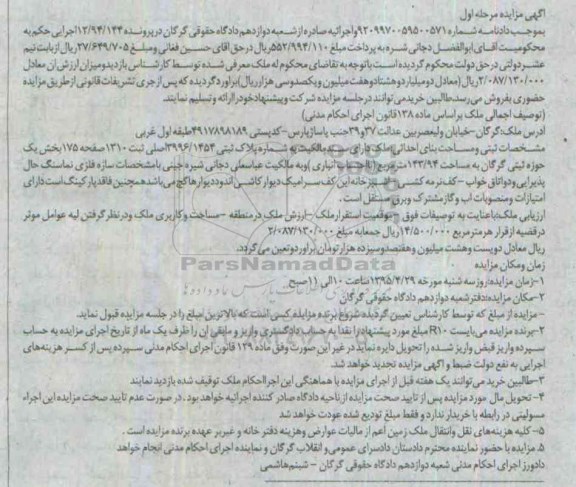 آگهی مزایده مرحله اول
بموجب دادنامه شماره ۹۲۰۹۹۷۰۰۵۹۵۰۰۵۷۱واجرائیه صادره از شعبه دوازدهم دادگاه حقوقی گرگان درپرونده ۱۲/۹۴/۱۴۴اجرایی حکم به
محکومیت آقای ابوالفضل دجانی شیره به پرداخت مبلغ ۵۵۲/۹۹۴/۱۱۰ریال در حق آقای حسین فغانی ومبلغ ۲۷/۶۴۹/۷۰۵ریال از بابت نیم
عشر دولتی درحق دولت محکوم گردیده است باتوجه به تقاضای محکوم له ملک معرفی شده توسط کارشناس بازدید ومیزان ارزش آن معادل
۲/۰۸۷/۱۳۰/۰۰۰ریال (معادل دو میلیارد و هشتاد و هفت میلیون ویکصدوسی هزار ریال)برآورد گردیده که پس ازجری تشریفات قانونی ازطریق مزایده
حضوری بفروش می رسد.طالبین خریدمی توانند درجلسه مزایده شرکت وپیشنهاد خود را ارائه و تسلیم نمایند.
(توصیف اجمالی ملک بر اساس ماده ۱۳۸ قانون اجرای احکام مدنی)
آدرس ملک:گرگان -خیابان ولیعصربین عدالت ۳۷و۳۹جنب پاساژپارس-کدپستی ۴۹۱۷۸۹۸۱۸۹طبقه اول غربی
مشخصات ثبتی ومساحت بنای احداثی:ملک دارای سند مالکیت به شماره پلاک ثبتی ۳۹۹۶/۱۴۵۴اصلی ثبت ۱۳۱۰صفحه ۱۷۵بخش یک
حوزه ثبتی گرگان به مساحت ۱۴۳/۹۴مترمربع (با احتساب انباری) وبه مالکیت عباسعلی دجانی شیره جینی بامشخصات سازه فلزی نماسنگ حال
پذیرایی ودواتاق خواب -کف نرمه کشی آشپزخانه این کف سرامیک دیوار کاشی اندود دیوارها گچ می باشد همچنین فاقد پارکینگ است دارای
امتیازات ومنصوبات آب و گاز مشترک وبرق مستقل است.
ارزیابی ملک:باعنایت به توصیفات فوق -موقعیت استقرار ملک -ارزش ملک درمنطقه -مساحت و کاربری ملک و درنظر گرفتن لیه عوامل موثر
درقضیه از قرار هر مترمربع ۱۴/۵۰۰/۰۰۰ریال جمعا به مبلغ ۲/۰۸۷/۱۳۰/۰۰۰
ریال معادل دویست وهشت میلیون و هفتصدوسیزده هزارتومان برآورد وتعین می گردد.
زمان ومکان مزایده
۱-زمان مزایده:روز سه شنبه مورخه ۱۳۹۵/۴/۲۹ساعت ۱۰الی ۱۱صبح
ParsNamadData
۲-مکان مزایده:دفترشعبه دوازدهم دادگاه حقوقی گرگان
-مزایده از مبلغ که توسط کارشناس تعیین گردیده شروع برنده مزایده کسی است که بالاترین مبلغ را در جلسه مزایده قبول نماید.
۲-برنده مزایده می بایست ۱۰R مبلغ مورد پیشنهاد را نقدا به حساب دادگستری واریز و مابقی آن را ظرف یک ماه از تاریخ اجرای مزایده به حساب
سپرده واریز قبض واریز شده را تحویل دایره نماید در غیر این صورت وفق ماده ۱۲۹ قانون اجرای احکام مدنی سپرده پس از کسر هزینه های
اجرایی به نفع دولت ضبط و آگهی مزایده تجدید خواهد شد.
۳-طالبین خرید می توانند یک هفته قبل از اجرای مزایده با هماهنگی این اجرااحکام ملک توقیف شده بازدید نمایند
۴- تحویل مال مورد مزایده پس از تایید صحت مزایده از ناحیه دادگاه صادر کننده اجرائیه خواهد بود. در صورت عدم تایید صحت مزایده این اجراء
مسولیتی در رابطه با خریدار ندارد و فقط مبلغ تودیع شده عودت خواهد شد
۵- کلیه هزینه های نقل وانتقال ملک زمین اعم از مالیات عوارض وهزینه دفتر خانه و غیربر عهده برنده مزایده است.
۵.مزایده با حضور نماینده محترم دادستان دادسرای عمومی و انقلاب گرگان و نماینده اجرای احکام مدنی انجام خواهد
دادورز اجرای احکام مدنی شعبه دوازدهم دادگاه حقوقی گرگان - شبنم هاشمی